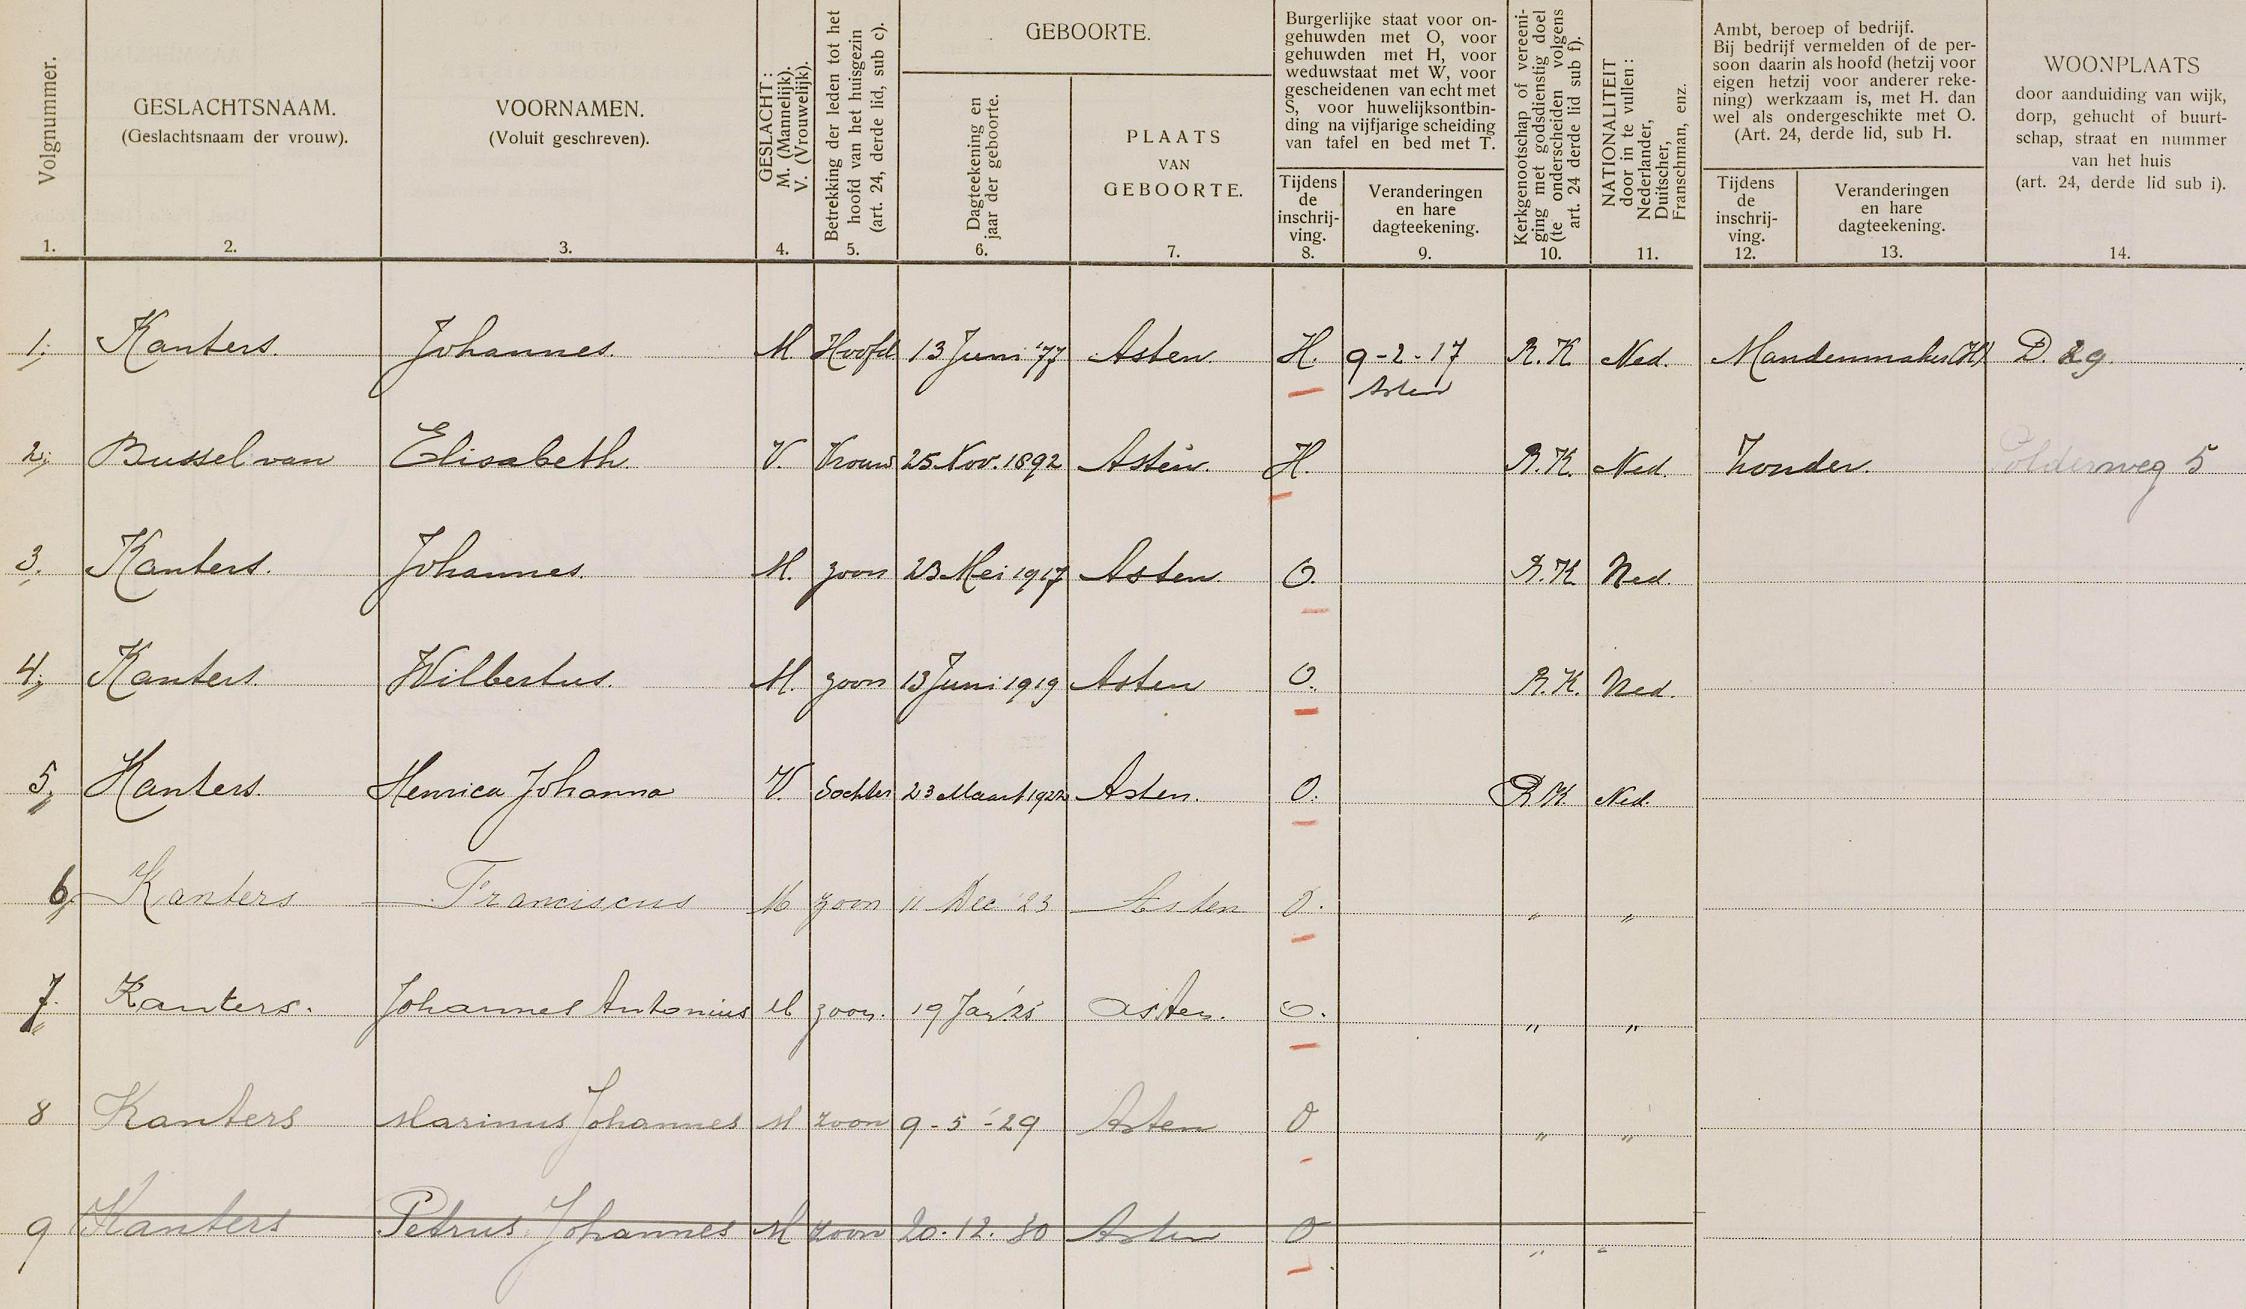 Volgnummer.
1.
GESLACHTSNAAM.
(Geslachtsnaam der vrouw).
2.
VOORNAMEN.
(Voluit geschreven).
3.
GESLACHT:
M. (Mannelijk).
V. (Vrouwelijk).
4.
Betrekking der leden tot het
hoofd van het huisgezin
(art. 24, derde lid, sub c).
5.
GEBOORTE.
Dagteekening en
jaar der geboorte.
6.
PLAATS
VAN
GEBOORTE.
7.
Burgerlijke staat voor on-
gehuwden met O, voor
gehuwden met H, voor
weduwstaat met W, voor
gescheidenen van echt met
S, voor huwelijksontbin-
ding na vijfjarige scheiding
van tafel en bed met T.
Tijdens
de
inschrij-
ving.
8.
Veranderingen
en hare
dagteekening.
9.
Kerkgenootschap of vereeni-
ging met godsdienstig doel
(te onderscheiden volgens
art. 24 derde lid sub f).
10.
NATIONALITEIT
door in te vullen:
Nederlander,
Duitscher,
Franschman, enz.
11.
Ambt, beroep of bedrijf.
Bij bedrijf vermelden of de per-
soon daarin als hoofd (hetzij voor
eigen hetzij voor anderer reke-
ning) werkzaam is, met H. dan
wel als ondergeschikte met O.
(Art. 24, derde lid, sub H.
Tijdens
de
inschrij-
ving.
12.
Veranderingen
en hare
dagteekening.
13.
WOONPLAATS
door aanduiding van wijk,
dorp, gehucht of buurt-
schap, straat en nummer
van het huis
(art. 24, derde lid sub i).
14.
1. Kanters. Johannes. M Hoofd 13 Juni '77 Asten. H. 9-2-17 R.K Ned. Mandenmaker (H) D. 29
Asten
2. Bussel van Elisabeth V. Vrouw 25 Nov. 1892 Asten. H. R.K. Ned. Zonder. Polderweg 5
3. Kanters. Johannes. M. zoon 23 Mei 1917 Asten. O. R.K Ned.
4. Kanters. Wilbertus. M. zoon 13 Juni 1919 Asten O. R.K. Ned.
5. Kanters. Henrica Johanna V. dochter 23 Maart 1922 Asten. O. R K Ned.
6 Kanters Franciscus M zoon 11 Dec '23 Asten O. " "
7. Kanters. Johannes Antonius M zoon. 19 Jan '25 Asten. O. " "
8 Kanters Marinus Johannes M zoon 9-5-'29 Asten O " "
9 Kanters Petrus Johannes M zoon 20.12.30 Asten O " "